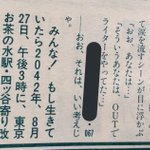 て涙を流すシーンが目に浮かぶ
「おお、あなたは…」
「そういうあなたは、OUTで
ライターをやってた…」
「おお、それは、いい考えじ
067
みんな!もし生きて
いたら2042年、8月
27日、午後3時に、東京
お茶の水駅、四ツ谷寄り改